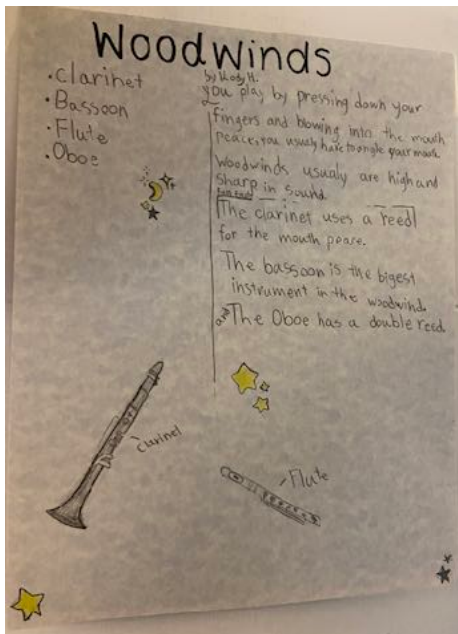 Woodwinds
• Clarinet
• Bassoon
• Flute
• Oboe
by Kody H.
You play by pressing down your
fingers and blowing into the mouth
peace, you usually have to angle your mouth
Woodwinds usualy are high and
sharp in sound.
fun facts
The clarinet uses a reed
for the mouth peace.
The bassoon is the bigest
instrument in the woodwind.
and The Oboe has a double reed
Clarinet
Flute